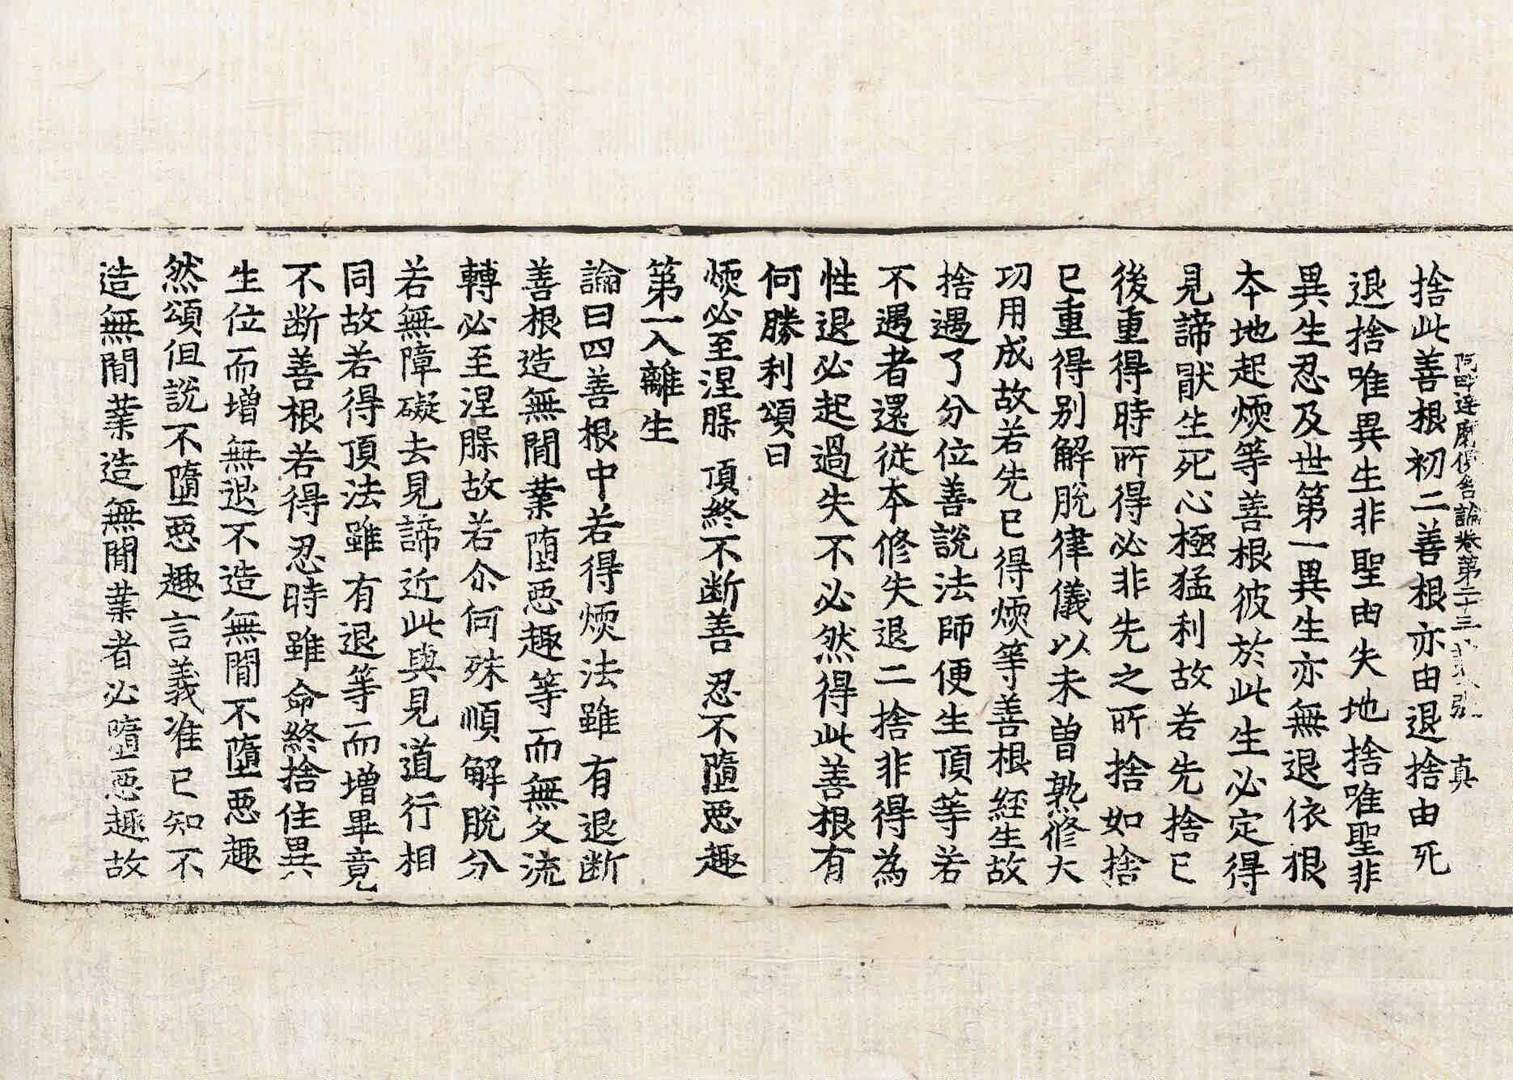 阿毗達磨俱舍論卷第二十三 張 真
捨此善根初二善根亦由退捨由死
退捨唯異生非聖由失地捨唯聖非
異生忍及世第一異生亦無退依根
本地起煗等善根彼於此生必定得
見諦猒生死心極猛利故若先捨已
後重得時所得必非先之所捨如捨
已重得別解脫律儀以未曾熟修大
功用成故若先已得煗等善根經生故
捨遇了分位善說法師便生頂等若
不遇者還從本修失退二捨非得為
性退必起過失不必然得此善根有
何勝利頌曰
煗必至涅槃 頂終不断善 忍不墮惡趣
第一入離生
論曰四善根中若得煗法雖有退断
善根造無間業墮惡趣等而無久流
轉必至涅槃故若尒何殊順解脫分
若無障礙去見諦近此與見道行相
同故若得頂法雖有退等而增畢竟
不断善根若得忍時雖命終捨住異
生位而增無退不造無間不墮惡趣
然頌但說不墮惡趣言義准已知不
造無間業造無間業者必墮惡趣故